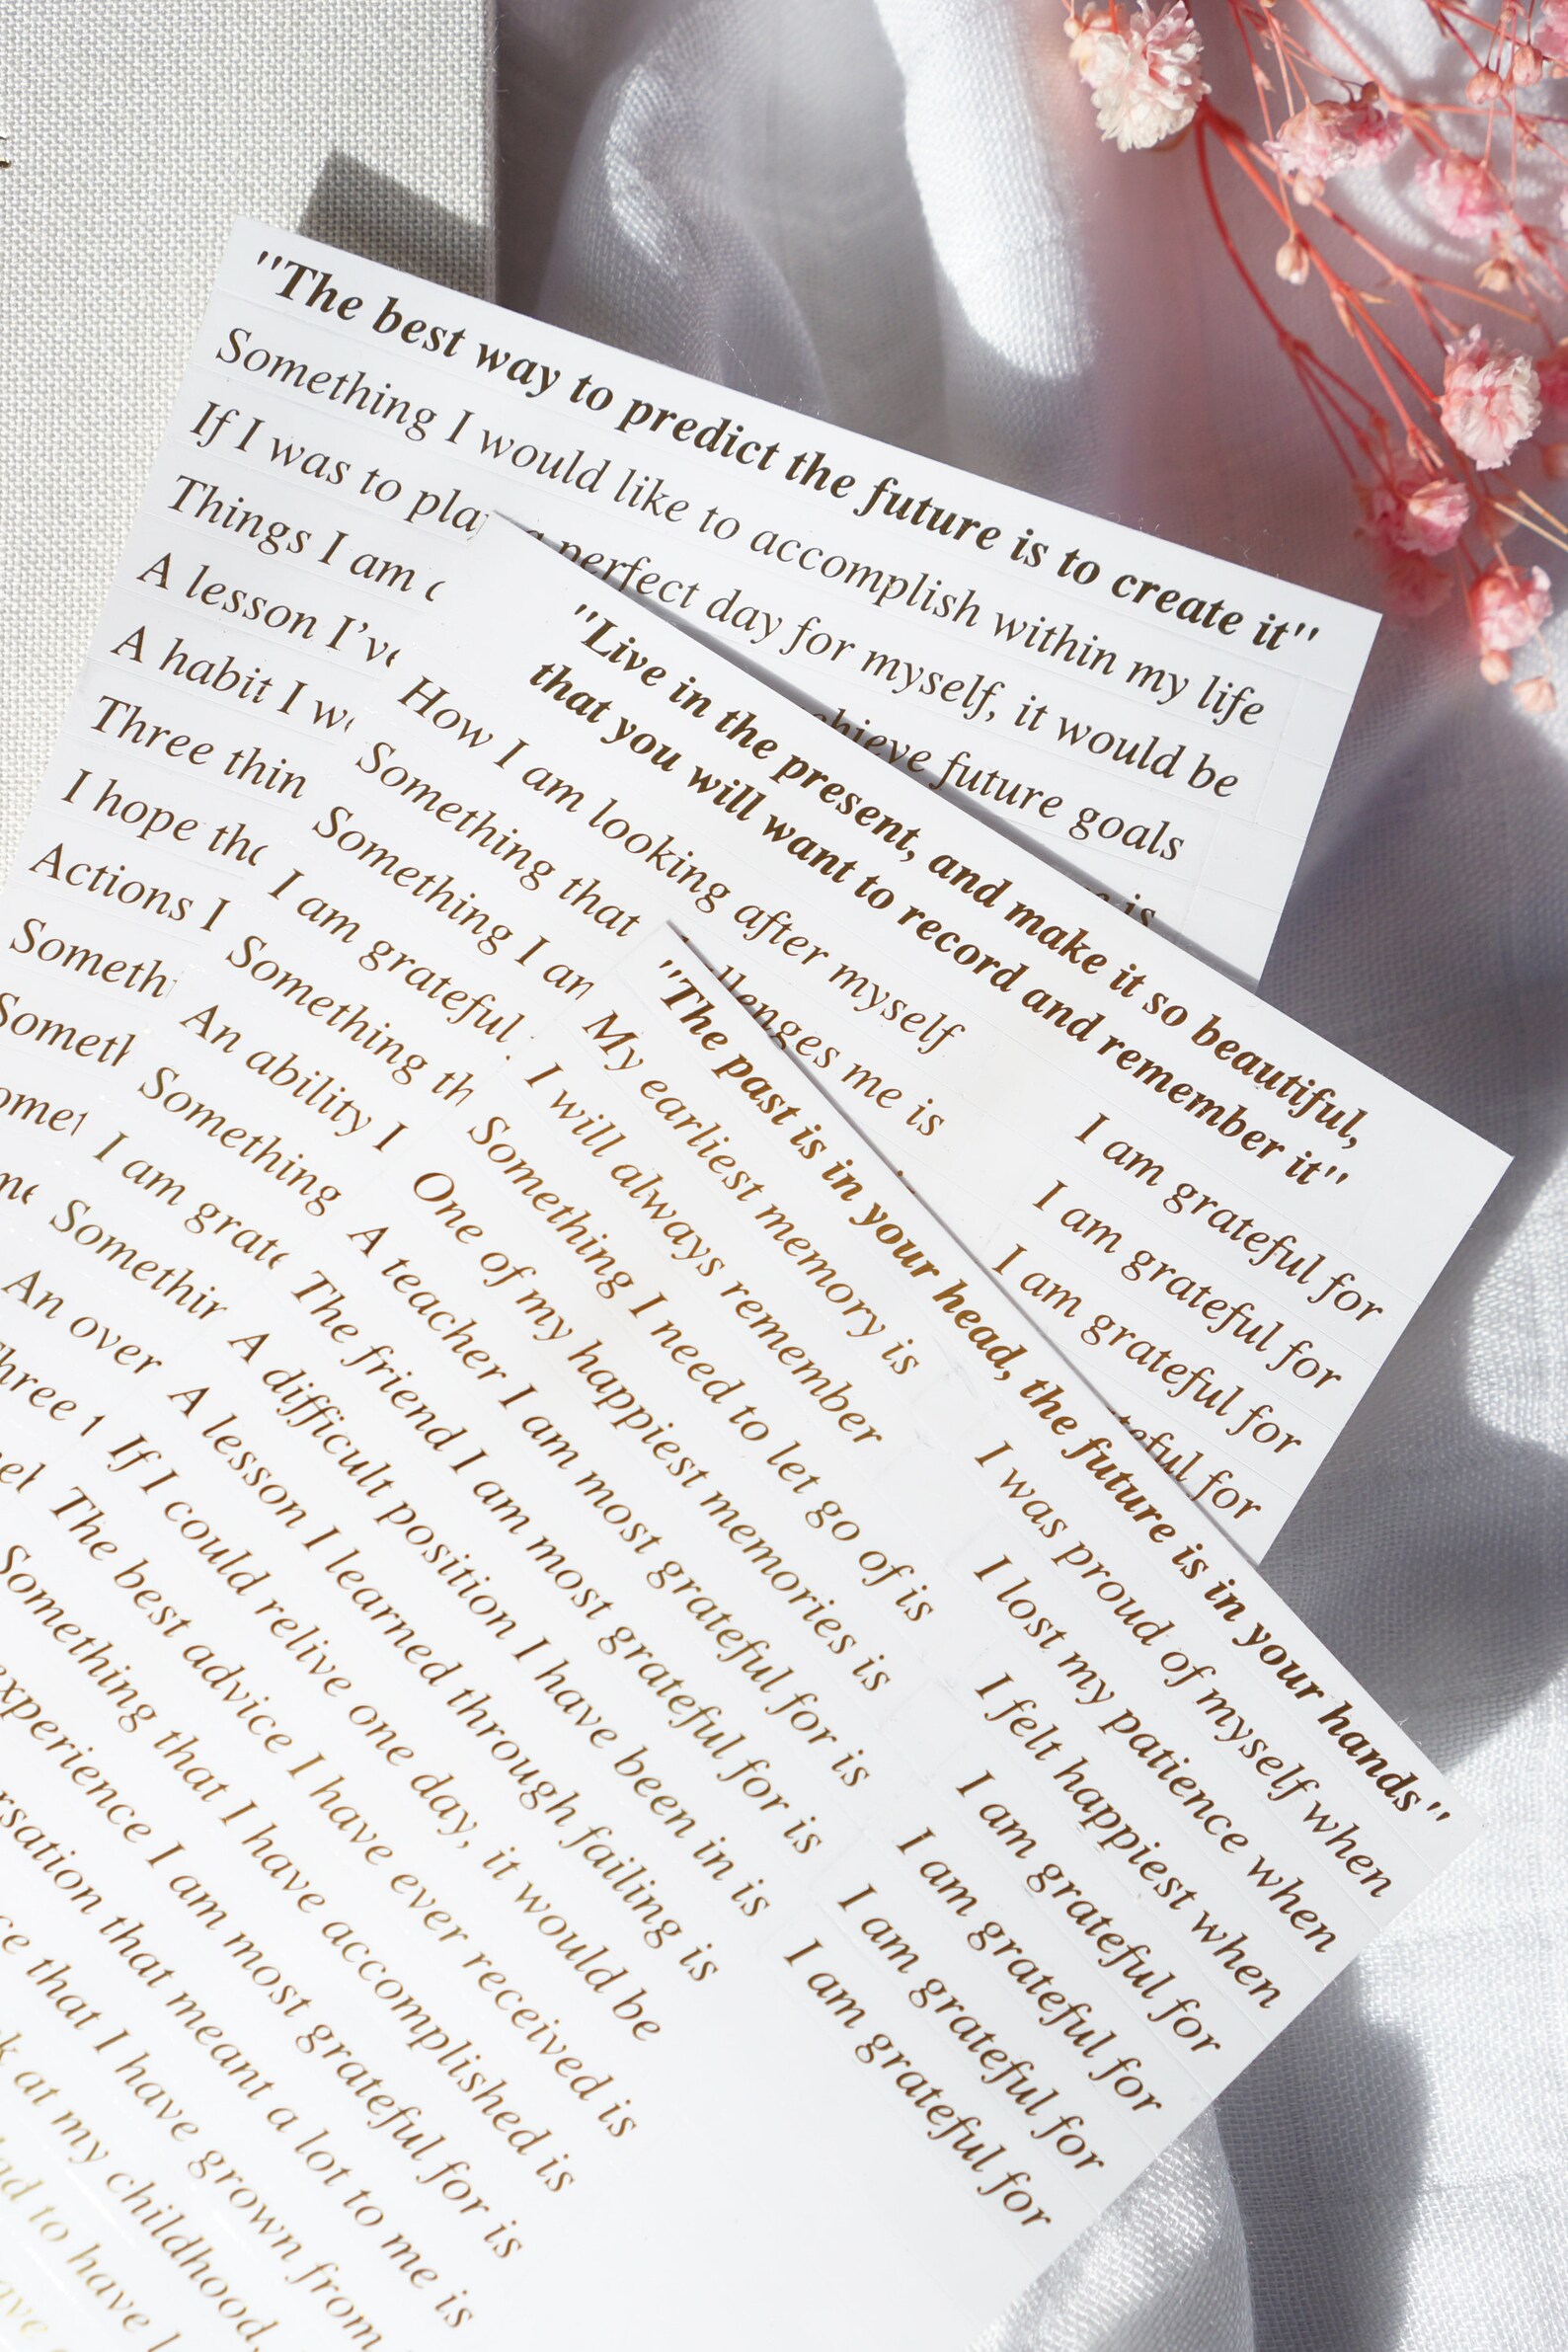 "The best way to predict the future is to create it"
Something I would like to accomplish within my life
If I was to plan a perfect day for myself, it would be
Things I am
achieve future goals
A lesson I've
is
A habit I
Three
I hope
Actions I
"Live in the present, and make it so beautiful,
that you will want to record and remember it"
How I am looking after myself
Something that
challenges me is
Something I am
I am grateful
Something
An ability I
Something
I am
Something
An over
Three
I am grateful for
I am grateful for
I am grateful for
grateful for
"The past is in your head, the future is in your hands"
My earliest memory is
I will always remember
Something I need to let go of is
One of my happiest memories is
A teacher I am most grateful for is
The friend I am most grateful for is
A difficult position I have been in is
A lesson I learned through failing is
If I could relive one day, it would be
The best advice I have ever received is
Something that I have accomplished is
experience I am most grateful for is
that meant a lot to me is
that I have grown from
at my childhood,
to have
I was proud of myself when
I lost my patience when
I felt happiest when
I am grateful for
I am grateful for
I am grateful for
I am grateful for